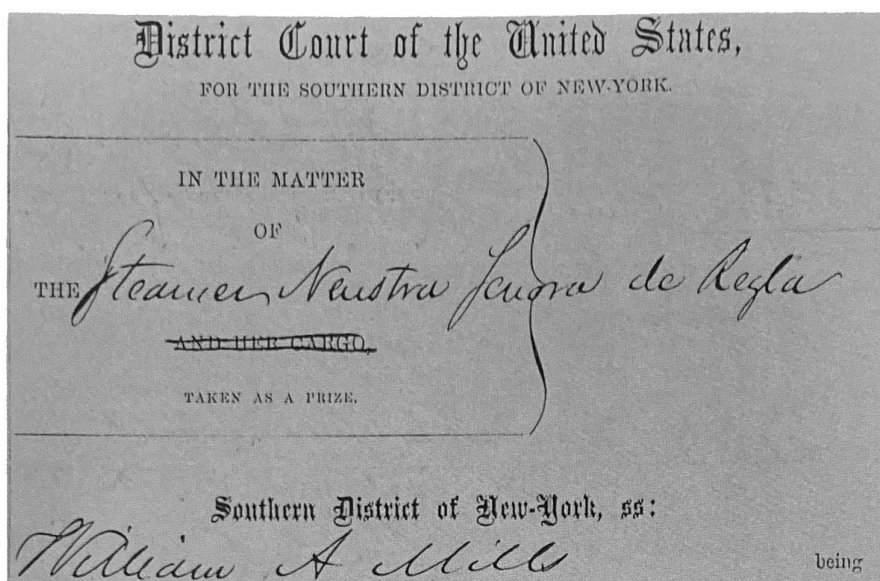 District Court of the United States,
FOR THE SOUTHERN DISTRICT OF NEW-YORK.
IN THE MATTER
OF
THE Steamer Neustra Senora de Regla
AND HER CARGO,
TAKEN AS A PRIZE.
Southern District of New-York, ss:
William A Mills being